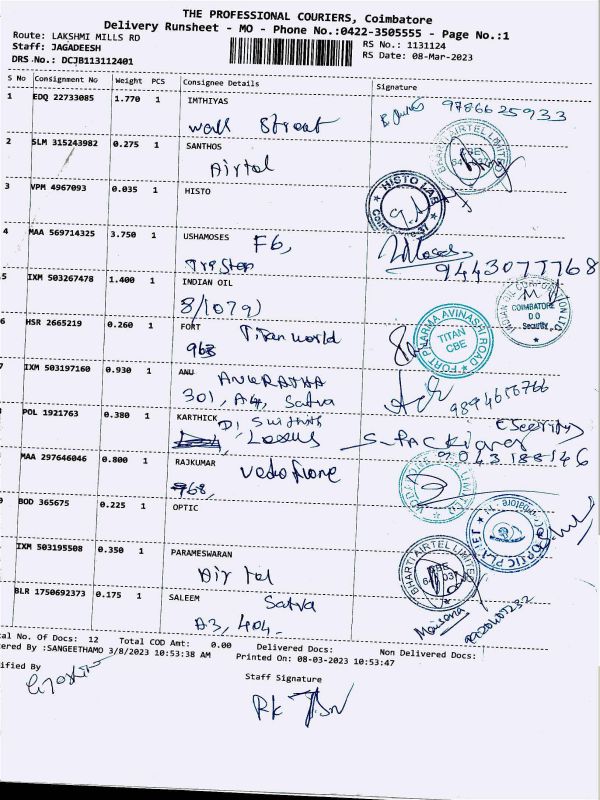 THE PROFESSIONAL COURIERS, Coimbatore
Delivery Runsheet - MO - Phone No.:0422-3505555 - Page No.:1
Route: LAKSHMI MILLS RD
RS No.: 1131124
Staff: JAGADEESH
RS Date: 08-Mar-2023
DRS No.: DCJB113112401
S No Consignment No Weight PCS Consignee Details Signature
1 EDQ 22733085 1.770 1 IMTHIYAS
97866 25933
Wall Street
2 SLM 315243982 0.275 1 SANTHOS
BHARTI AIRTEL LIMITED
Airtel
3 VPM 4967093 0.035 1 HISTO
HISTO LAB
4 MAA 569714325 3.750 1 USHAMOSES
F6,
9443077768
5 IXM 503267478 1.400 1 INDIAN OIL
INDIAN OIL CORPORATION LTD
COIMBATORE
D O
Security
8/1079)
6 HSR 2665219 0.260 1 FORT
Titan world
968
FORT PHARMA AVINASHI ROAD
TITAN
CBE
7 IXM 503197160 0.930 1 ANU
ANURADHA
301, A4, Satva
9894656766
POL 1921763 0.380 1 KARTHICK
Locus
(Security)
9043188146
MAA 297646046 0.800 1 RAJKUMAR
Vodafone
968,
BOD 365675 0.225 1 OPTIC
IXM 503195508 0.350 1 PARAMESWARAN
BHARTI AIRTEL LIMITED
Airtel
BLR 1750692373 0.175 1 SALEEM
Satva
A3, 404.
Total No. Of Docs: 12 Total COD Amt: 0.00 Delivered Docs: Non Delivered Docs:
tered By :SANGEETHAMO 3/8/2023 10:53:38 AM Printed On: 08-03-2023 10:53:47
ified By
Staff Signature